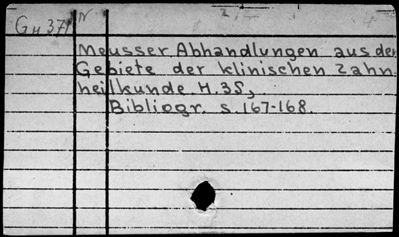 Gu 371
Meusser, Abhandlungen aus der
Gebiete der klinischen Zahn-
heilkunde H.35,
Bibliogr. s.167-168.